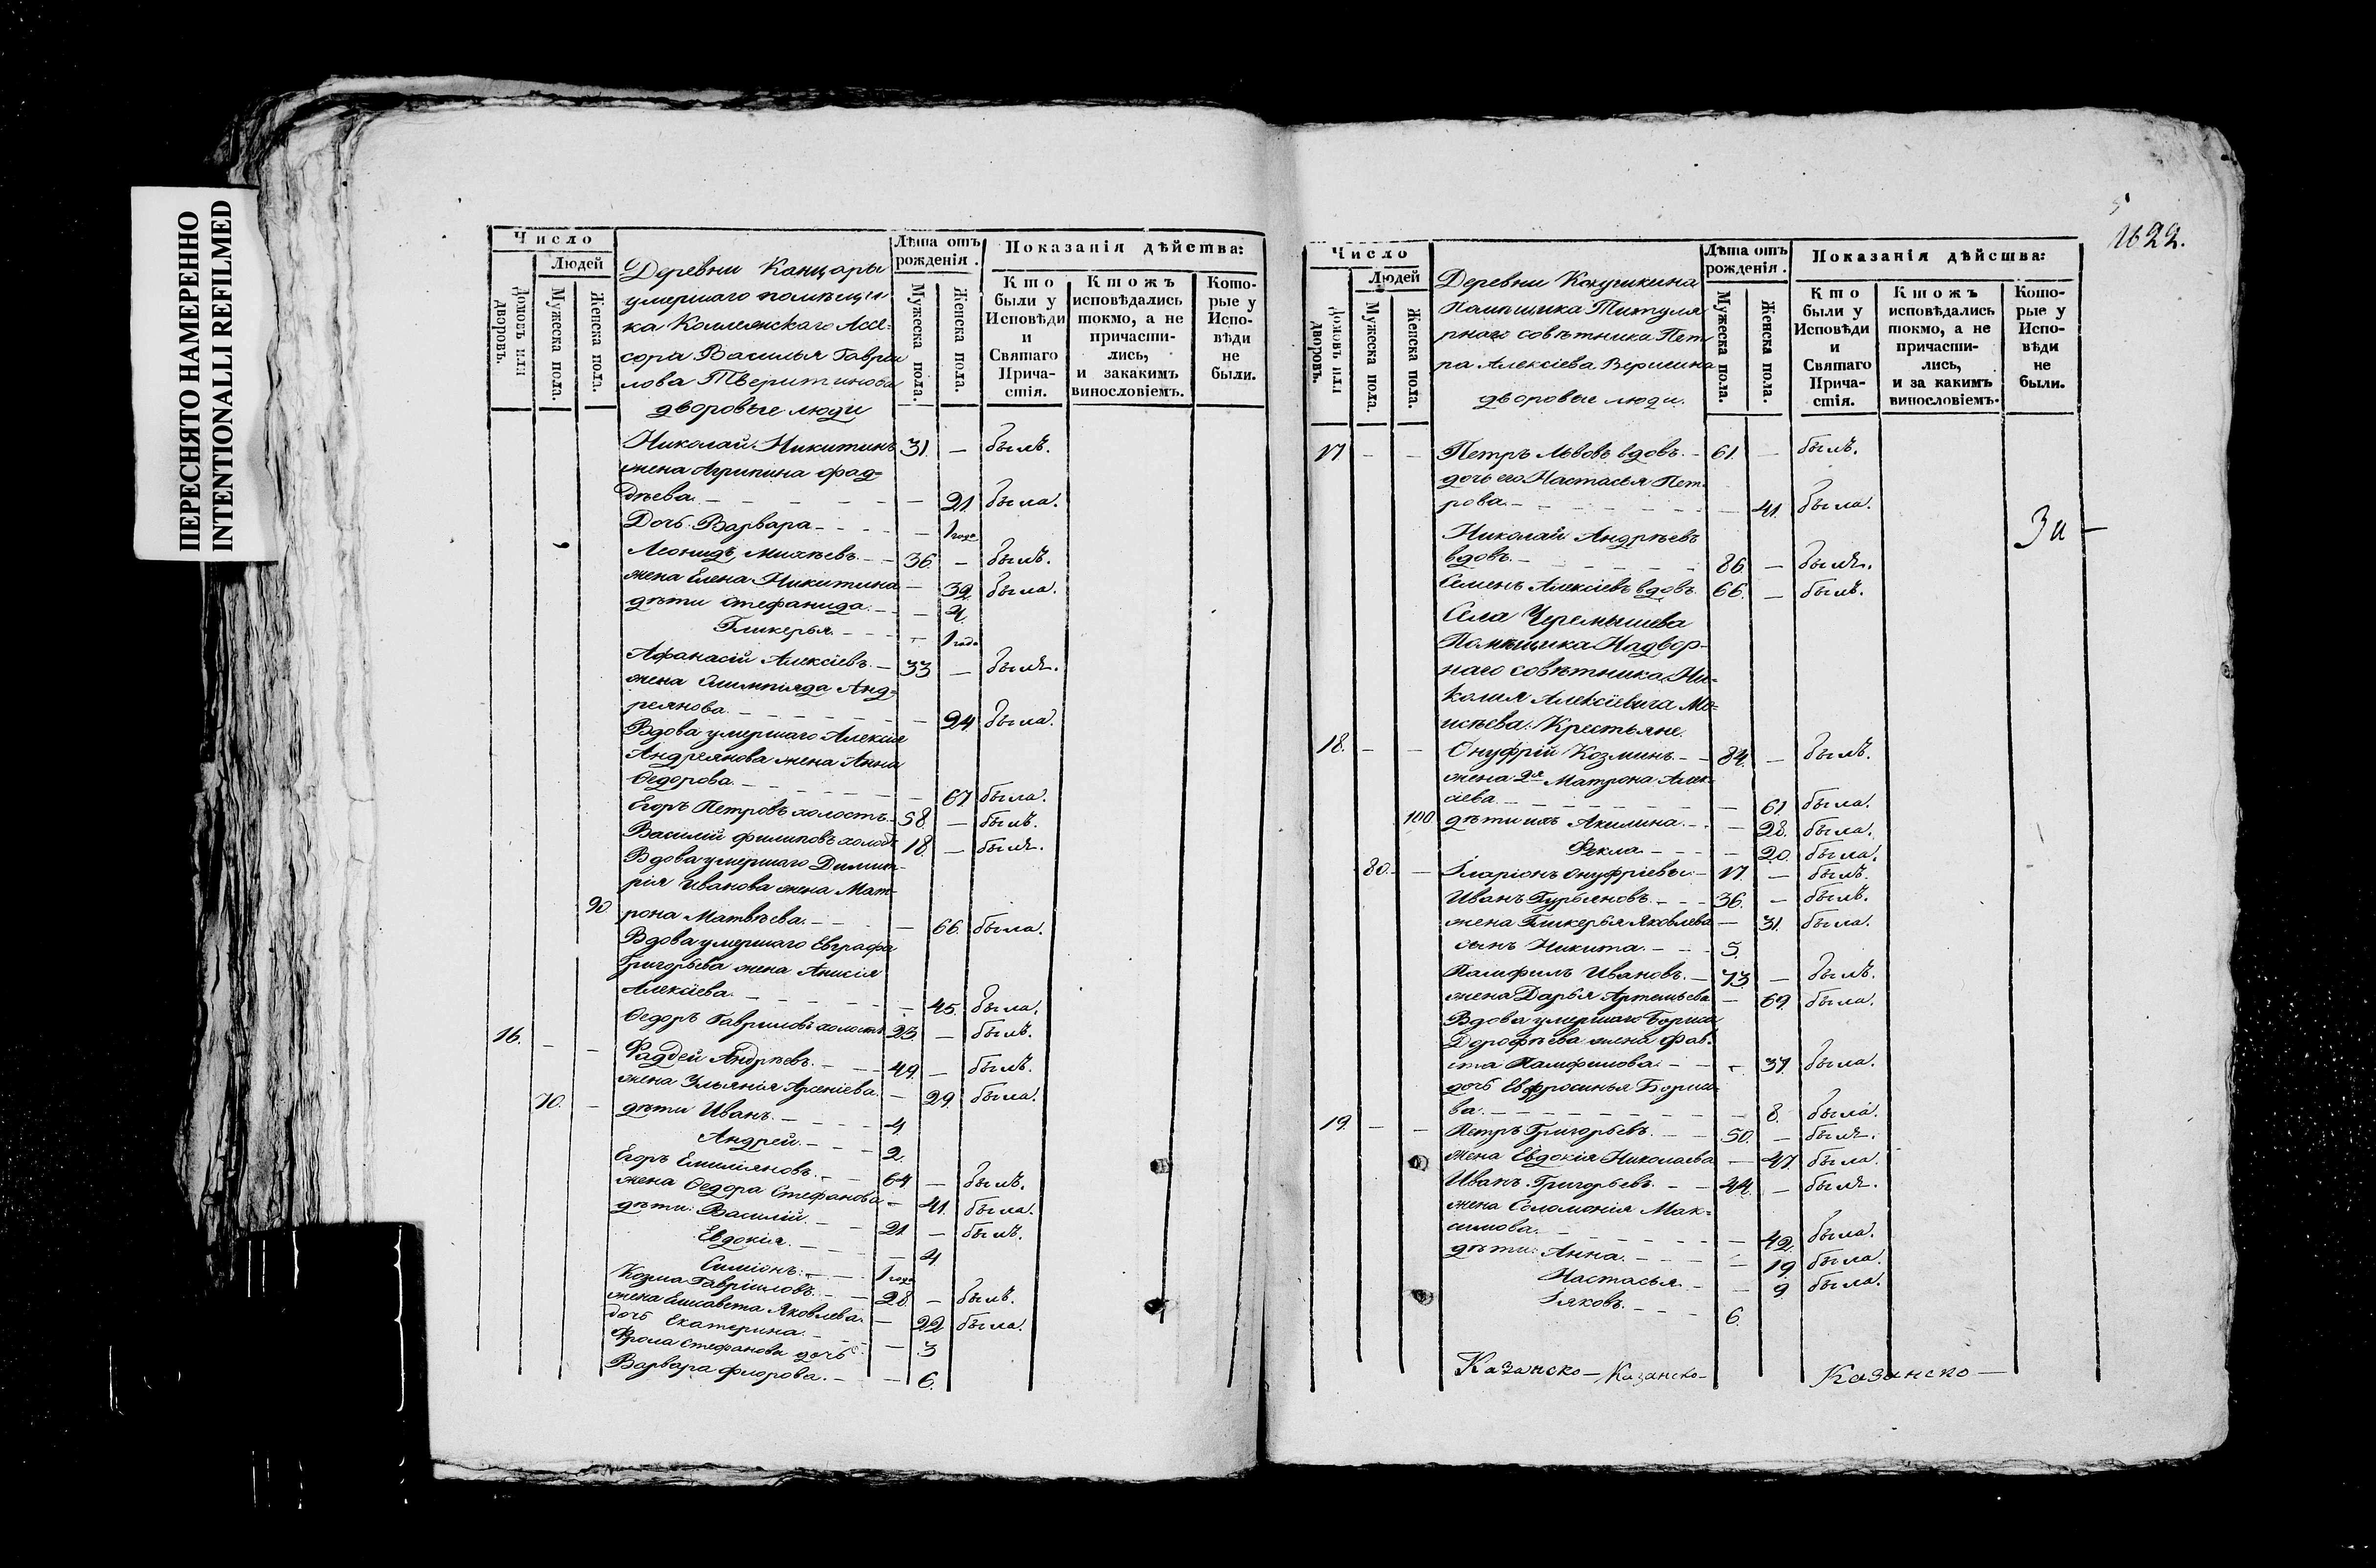 ПЕРЕСНЯТО НАМЕРЕННО
INTENTIONALLI REFILMED
Число
Людей
Домовъ или дворовъ.
Мужеска пола.
Женска пола.
Деревни Канцары
умершаго помѣщи
ка Коллежскаго Ассе-
сора Василья Гаври
лова Тверитинова
дворовые люди
Лѣта отъ рожденія.
Мужеска пола.
Женска пола.
Показанія дѣйства:
Кто были у Исповѣди и Святаго Прича- стія.
Ктожъ исповѣдались токмо, а не причасти- лись, и закакимъ винословіемъ.
Кото- рые у Испо- вѣди не были.
Николай Никитинъ 31. — былъ.
жена Агрипина Фад-
дѣева — 21. была.
Дочь Варвара — 1 года
Леонидъ 36. — былъ.
жена Елена Никитина — 39. была.
дѣти Стефанида — 4.
Гликерья — 1 года
Афанасій Алексіевъ 33 — былъ.
жена Олимпіяда Анд-
реянова — 24. была.
Вдова умершаго Алексія
Андреянова жена Анна
Ѳедорова — 67. была.
Егоръ Петровъ холостъ 58. — былъ.
Василій Филиповъ холостъ 18. — былъ.
Вдова умершаго Димит-
рія Иванова жена Мат-
90. рона Матвѣева — 66. была.
Вдова умершаго Евграфа
Григорьева жена Анисія
Алексіева — 45. была.
Ѳедоръ Гавриловъ холостъ 25. — былъ.
16. — — Фаддей Андрѣевъ 49. — былъ.
жена Ульянія Арсеніева — 29. была.
70. — дѣти Иванъ 4
Андрей 2.
Егоръ Емиліяновъ 64 — былъ.
жена Ѳедора Стефанова — 41. была.
дѣти: Василій 21 — былъ.
Евдокія — 4
Симіонъ 1 года
Козма Гавріиловъ 28. — былъ.
жена Елисавета Яковлева — 22 была.
дочь Екатерина — 3
Фрола Стефанова дочь
Варвара Флорова — 6.
1622.
Число
Людей
Домовъ или дворовъ.
Мужеска пола.
Женска пола.
Деревни Кокушкина
Помѣщика Титуля
рнаго совѣтника Пет
ра Алексіева Веригина
дворовые люди.
Лѣта отъ рожденія.
Мужеска пола.
Женска пола.
Показанія дѣйсшва:
Кто были у Исповѣди и Святаго Прича- стія.
Ктожъ исповѣдались токмо, а не причасти- лись, и за какимъ винословіемъ.
Кото- рые у Испо- вѣди не были.
17 — — Петръ Львовъ вдовъ 61. — былъ.
дочь его Настасья Пет-
рова — 41. была.
Николай Андрѣевъ
вдовъ 86. — былъ.
Семенъ Алексіевъ вдовъ 66. — былъ.
За —
Села Черемышева
Помѣщика Надвор-
наго совѣтника Ни-
колая Алексіевича Мо-
исѣева Крестьяне.
18. — — Онуфрій Козминъ 84. — былъ.
жена 2я Матрона Алек-
сіева — 61. была.
100. дѣти ихъ Акилина — 28. была.
Фекла — 20. была.
80. — Іларіонъ Онуфріевъ 17. — былъ.
Иванъ Гурьяновъ 36. — былъ.
жена Гликерья Яковлева — 31. была.
сынъ Никита 5.
Памфилъ Ивановъ 73 — былъ.
жена Дарья Артемьева — 69. была.
Вдова умершаго Бориса
Дорофѣева жена Фав-
ста Памфилова — 37. была.
дочь Евфросинья Борисо
ва — 8. была.
19. — — Петръ Григорьевъ 50. — былъ.
жена Евдокія Николаева — 47. была.
Иванъ Григорьевъ 44. — былъ.
жена Соломонія Мак-
симова — 42. была.
дѣти: Анна — 19. была.
Настасья — 9. была.
Іяковъ 6.
Казанско — Казанско — Казанско —